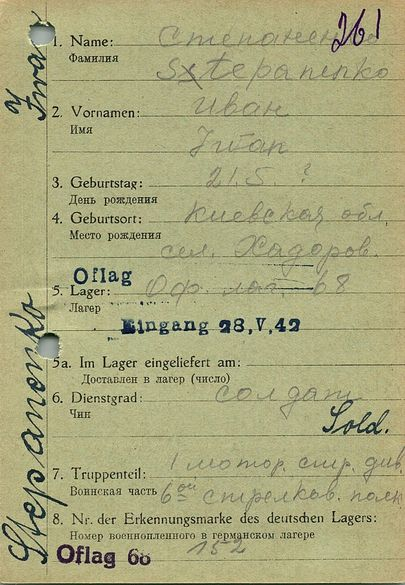 261
Stepanenko Iwan
1. Name: Степаненко
Фамилия
Stepanenko
2. Vornamen: Иван
Имя
Iwan
3. Geburtstag: 21.5. ?
День рождения
4. Geburtsort: Киевская обл
Место рождения
сел. Хадоров.
Oflag
5. Lager: Оф. лаг. 68
Лагер
Eingang 28.V.42
5a. Im Lager eingeliefert am:
Доставлен в лагер (число)
6. Dienstgrad: солдат
Чин
Sold.
7. Truppenteil: 1 мотор. стр. див.
Воинская часть 6ой стрелков. полк
8. Nr. der Erkennungsmarke des deutschen Lagers:
Номер военнопленного в германском лагере
Oflag 68 152